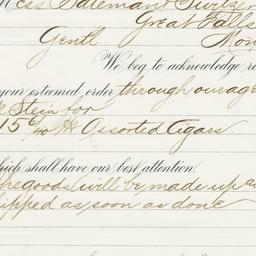 Great Falls
Gentl Mon
We beg to acknowledge re
your esteemed order through our age
Stein for
15 Assorted Cigars.
which shall have our best attention.
The goods will be made up a
hipped as soon as done